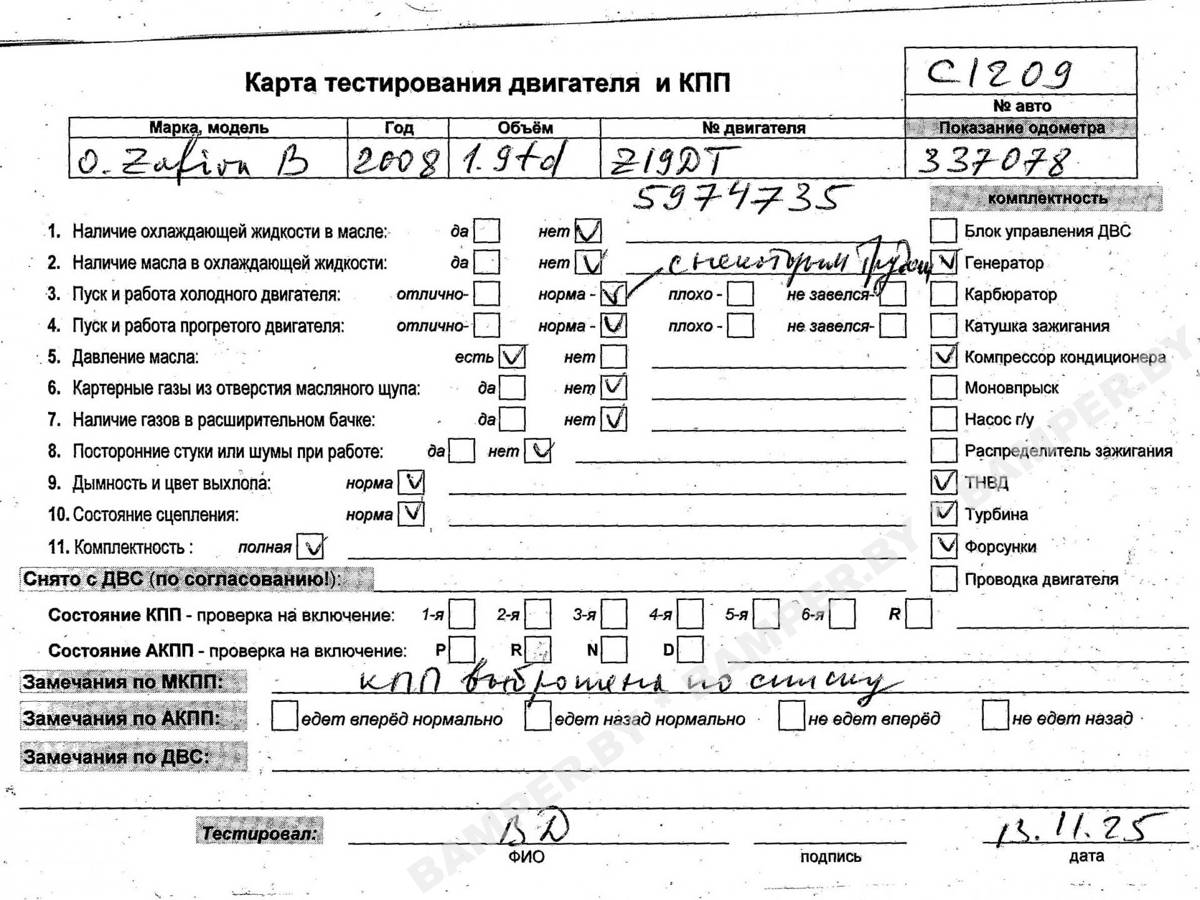 Карта тестирования двигателя и КПП
C1209
№ авто
Марка, модель Год Объём № двигателя Показание одометра
O. Zafira B 2008 1.9td Z19DT 337078
5974735
комплектность
1. Наличие охлаждающей жидкости в масле: да нет Блок управления ДВС
2. Наличие масла в охлаждающей жидкости: да нет с некоторым Генератор
3. Пуск и работа холодного двигателя: отлично- норма - плохо - не завелся- Карбюратор
4. Пуск и работа прогретого двигателя: отлично- норма - плохо - не завелся- Катушка зажигания
5. Давление масла: есть нет Компрессор кондиционера
6. Картерные газы из отверстия масляного щупа: да нет Моновпрыск
7. Наличие газов в расширительном бачке: да нет Насос г/у
8. Посторонние стуки или шумы при работе: да нет Распределитель зажигания
9. Дымность и цвет выхлопа: норма ТНВД
10. Состояние сцепления: норма Турбина
11. Комплектность : полная Форсунки
Снято с ДВС (по согласованию!): Проводка двигателя
Состояние КПП - проверка на включение: 1-я 2-я 3-я 4-я 5-я 6-я R
Состояние АКПП - проверка на включение: P R N D
Замечания по МКПП: КПП выброшена по списку
Замечания по АКПП: едет вперёд нормально едет назад нормально не едет вперёд не едет назад
Замечания по ДВС:
Тестировал: ВД 13.11.25
ФИО подпись дата
BAMPER.BY - BAMPER.BY - BAMPER.BY